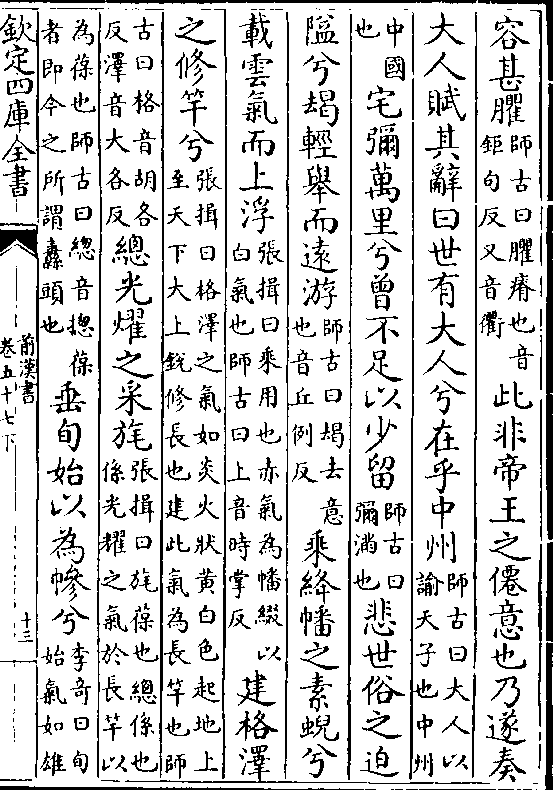 容甚臞師古曰臞瘠也音鉅句反又音衢此非帝王之僊意也乃遂奏
大人賦其辭曰世有大人兮在乎中州師古曰大人以諭天子也中州
中國也宅彌萬里兮曾不足以少留師古曰彌滿也悲世俗之迫
隘兮朅輕舉而遠游師古曰朅去意也音丘例反乘絳幡之素蜺兮
載雲氣而上浮張揖曰乘用也亦氣為幡綴以白氣也師古曰上音時掌反建格澤
之修竿兮張揖曰格澤之氣如炎火狀黃白色起地上至天下大上銳修長也建此氣為長竿也師
古曰格音胡各反澤音大各反總光耀之采旄張揖曰旄葆也總係也係光耀之氣於長竿以
為葆也師古曰總音揔葆者即今之所謂纛頭也垂旬始以為幓兮李奇曰旬始氣如雄
欽定四庫全書
前漢書
卷五十七下
十三